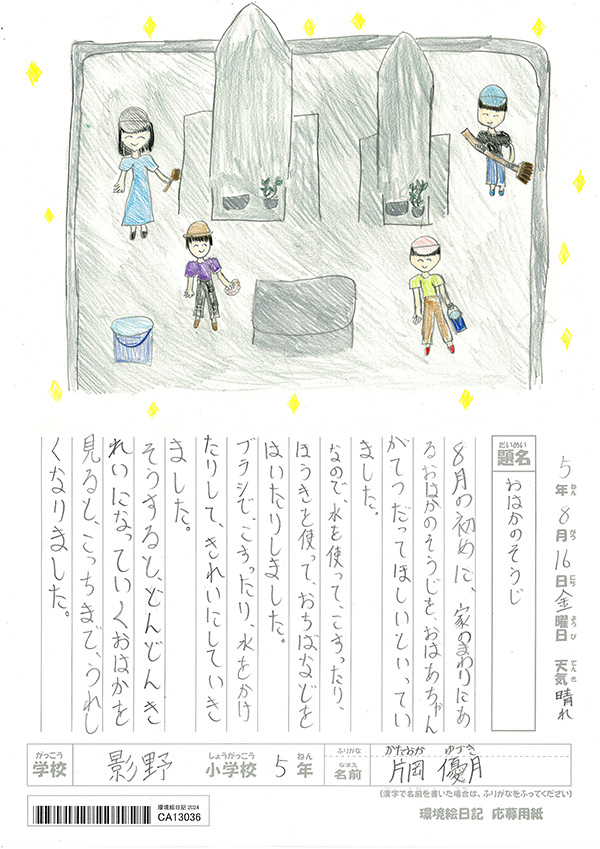 5年8月16日金曜日 天気晴れ
ねん がつ にち ようび てんき
だいめい
題名
おはかのそうじ
8月の初めに、家のまわりにあ
るおはかのそうじを、おばあちゃん
がてつだってほしいといってい
ました。
なので、水を使って、こすったり、
ほうきを使って、おちばなどを
はいたりしました。
ブラシで、こすったり、水をかけ
たりして、きれいにしていき
ました。
そうすると、どんどんき
れいになっていくおはかを
見ると、こっちまで、うれし
くなりました。
がっこう
学校
影野
しょうがっこう
小学校
5
ねん
年
ふりがな
かたおか ゆづき
なまえ
名前
片岡 優月
(漢字で名前を書いた場合は、ふりがなをふってください)
環境絵日記 2024
CA13036
環境絵日記 応募用紙